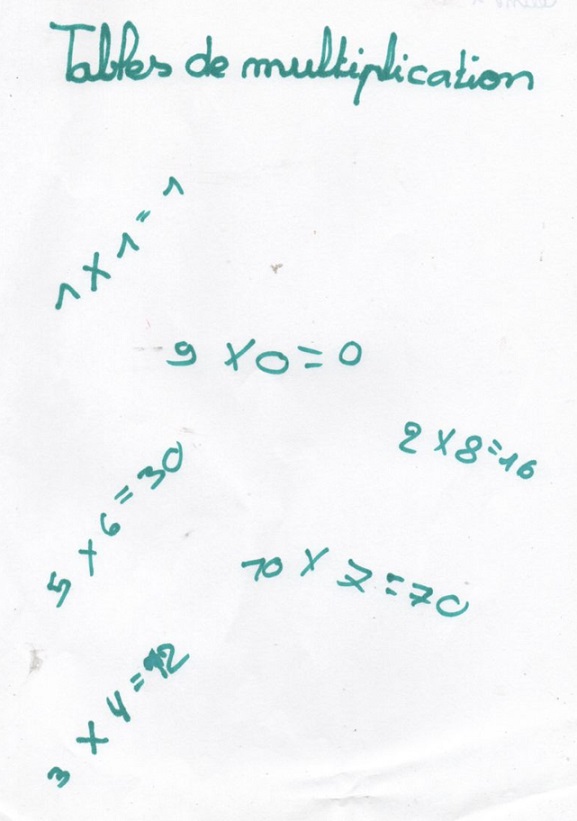 Tables de multiplication
1 x 1 = 1
9 x 0 = 0
2 x 8 = 16
5 x 6 = 30
10 x 7 = 70
3 x 4 = 12